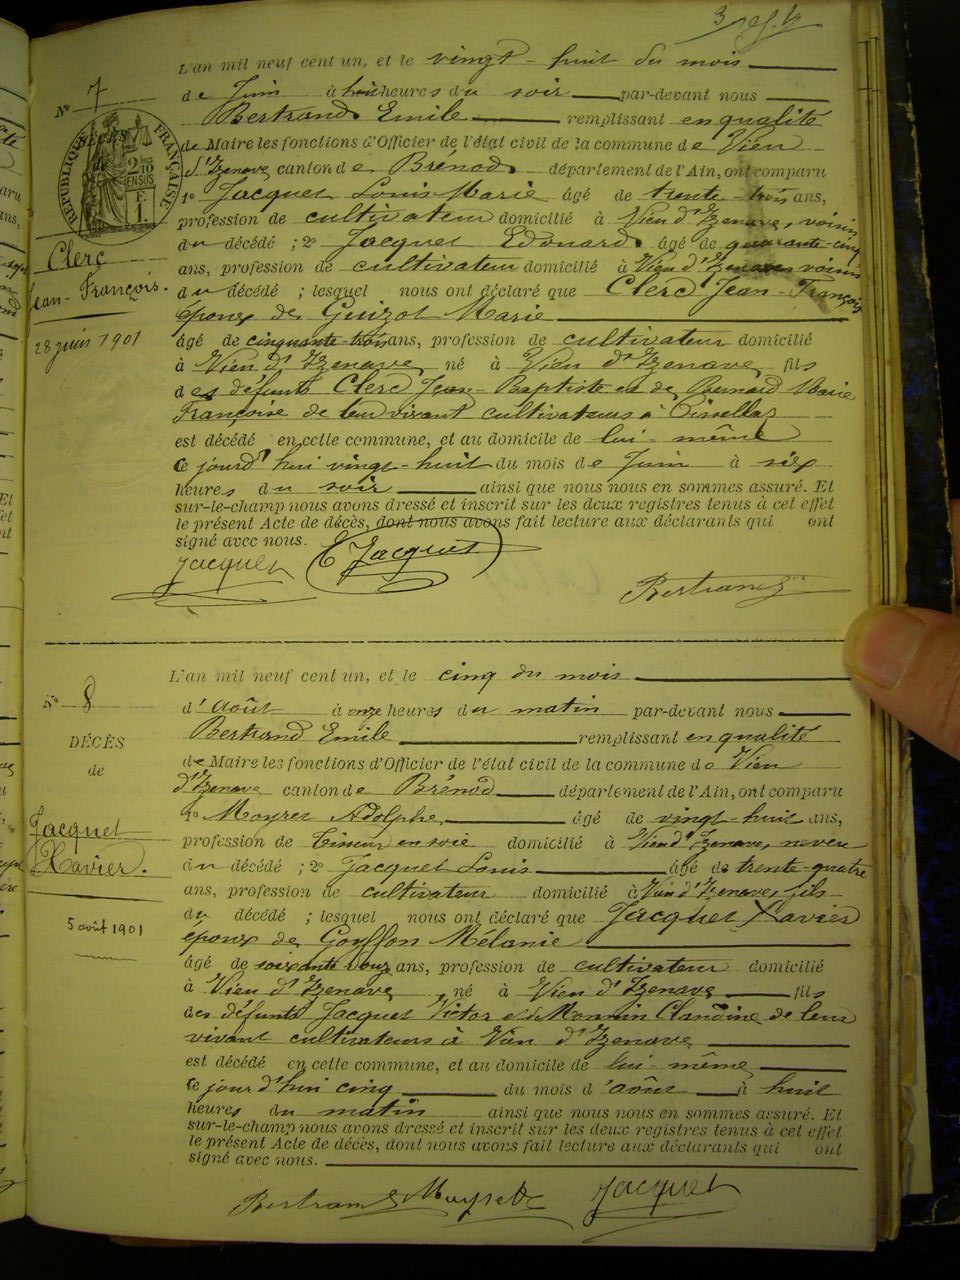 3
L'an mil neuf cent un, et le vingt-huit du mois
N° 7
de Juin à huit heures du soir par-devant nous
Bertrand Emile remplissant en qualité
de Maire les fonctions d'Officier de l'état civil de la commune de Vieu
d'Izenave canton de Brénod département de l'Ain, ont comparu
RÉPUBLIQUE FRANÇAISE
2/10
EN SUS
F.
1.
1° Jacquet Louis Marie âgé de trente-trois ans,
profession de cultivateur domicilié à Vieu d'Izenave, voisin
du décédé ; 2° Jacquet Edouard âgé de quarante-cinq
Clerc
Jean-François.
28 juin 1901
ans, profession de cultivateur domicilié à Vieu d'Izenave voisin
du décédé ; lesquel nous ont déclaré que Clerc Jean-François
époux de Guizot Marie
âgé de cinquante-trois ans, profession de cultivateur domicilié
à Vieu d'Izenave, né à Vieu d'Izenave, fils
des défunts Clerc Jean-Baptiste et de Bernard Marie
Françoise de leur vivant cultivateurs à
est décédé en cette commune, et au domicile de lui-même
ce jourd'hui vingt-huit du mois de Juin à six
heures du soir ainsi que nous nous en sommes assuré. Et
sur-le-champ nous avons dressé et inscrit sur les deux registres tenus à cet effet
le présent Acte de décès, dont nous avons fait lecture aux déclarants qui ont
signé avec nous.
Jacquet E Jacquet
Bertrand
L'an mil neuf cent un, et le cinq du mois
N° 8
d'août à onze heures du matin par-devant nous
Bertrand Emile remplissant en qualité
DÉCÈS
de
Jacquet
Xavier.
5 août 1901
de Maire les fonctions d'Officier de l'état civil de la commune de Vieu
d'Izenave canton de Brénod département de l'Ain, ont comparu
1° Moyret Adolphe, âgé de vingt-huit ans,
profession de tisseur en soie domicilié à Vieu d'Izenave, neveu
du décédé ; 2° Jacquet Louis âgé de trente-quatre
ans, profession de cultivateur domicilié à Vieu d'Izenave, fils
du décédé ; lesquel nous ont déclaré que Jacquet Xavier
époux de Gouffon Mélanie
âgé de soixante-douze ans, profession de cultivateur domicilié
à Vieu d'Izenave, né à Vieu d'Izenave fils
des défunts Jacquet Victor et de Monnin Claudine de leur
vivant cultivateurs à Vieu d'Izenave,
est décédé en cette commune, et au domicile de lui-même,
ce jour d'hui cinq du mois d'août à huit
heures du matin ainsi que nous nous en sommes assuré. Et
sur-le-champ nous avons dressé et inscrit sur les deux registres tenus à cet effet
le présent Acte de décès, dont nous avons fait lecture aux déclarants qui ont
signé avec nous.
Bertrand Jacquet